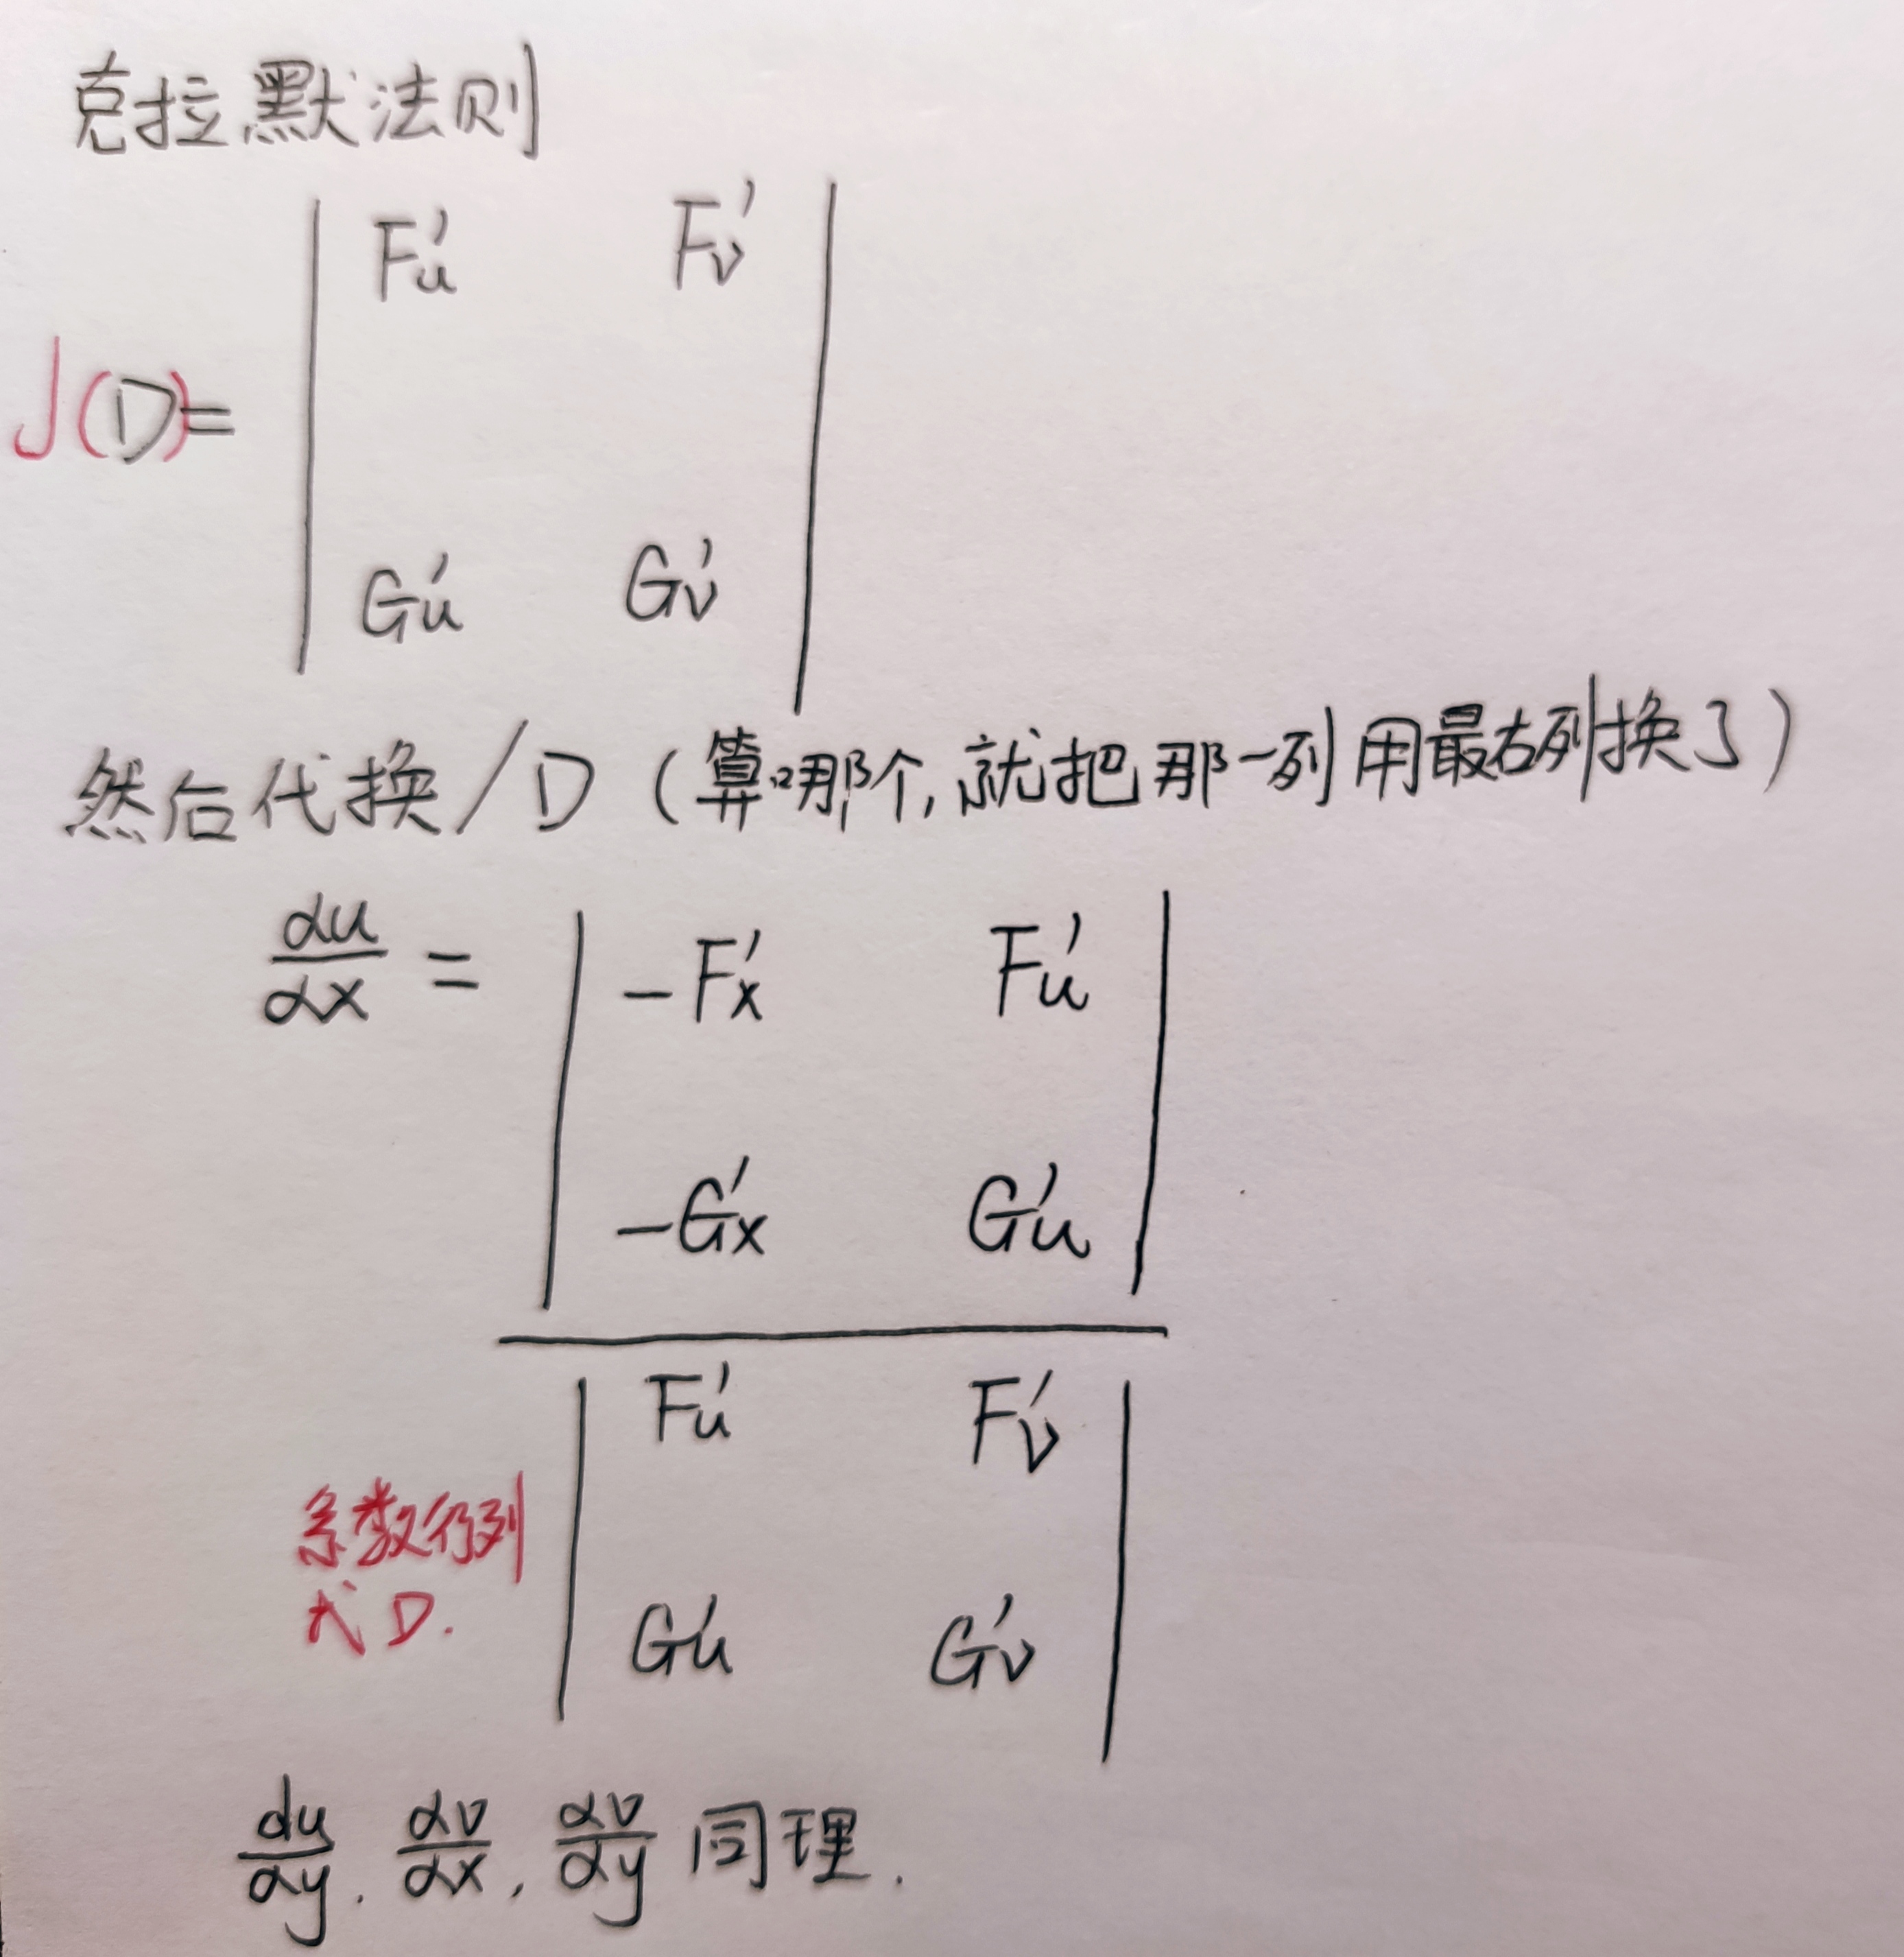 克拉默法则
F'u F'v
J(D)=
G'u G'v
然后代换/D（算哪个,就把那一列用最右列换了）
∂u/∂x = -F'x F'u
-G'x G'u
F'u F'v
系数行列
式D.
G'u G'v
∂u/∂y. ∂v/∂x, ∂v/∂y 同理.